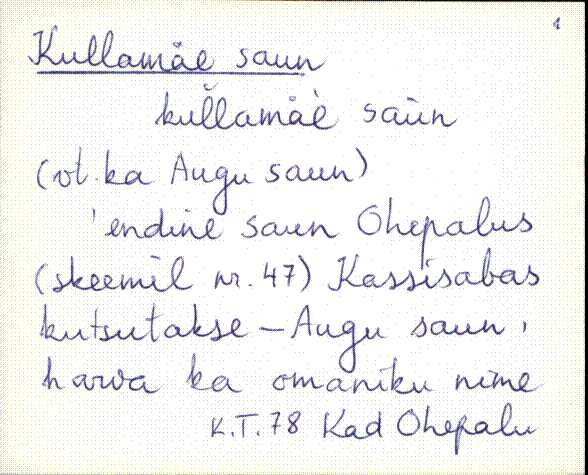 1
Kullamäe saun
kul̆lamäè saùn
(vt. ka Augu saun)
'endine saun Ohepalus
(skeemil nr. 47) Kassisabas
kutsutakse – Augu saun,
harva ka omaniku nime
K.T. 78 Kad Ohepalu